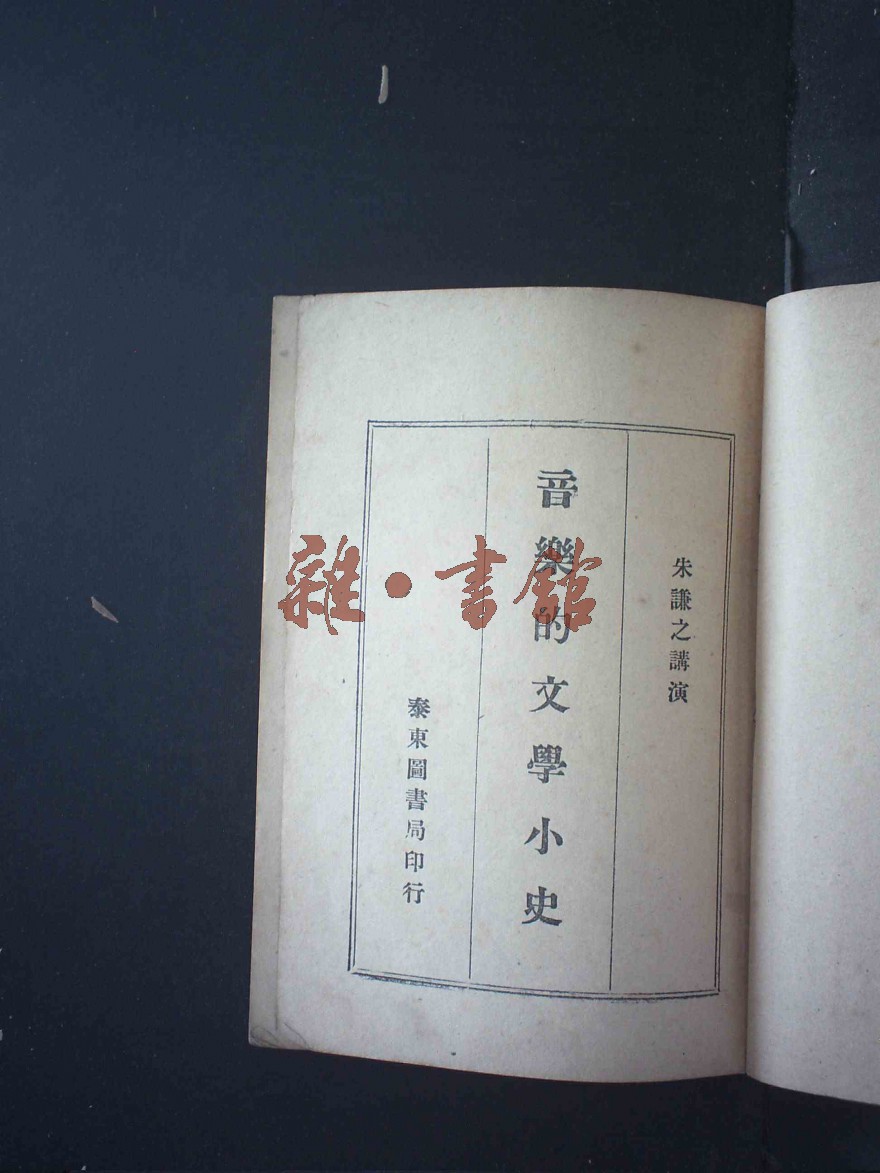 朱謙之講演
音樂的文學小史
泰東圖書局印行
雜·書館